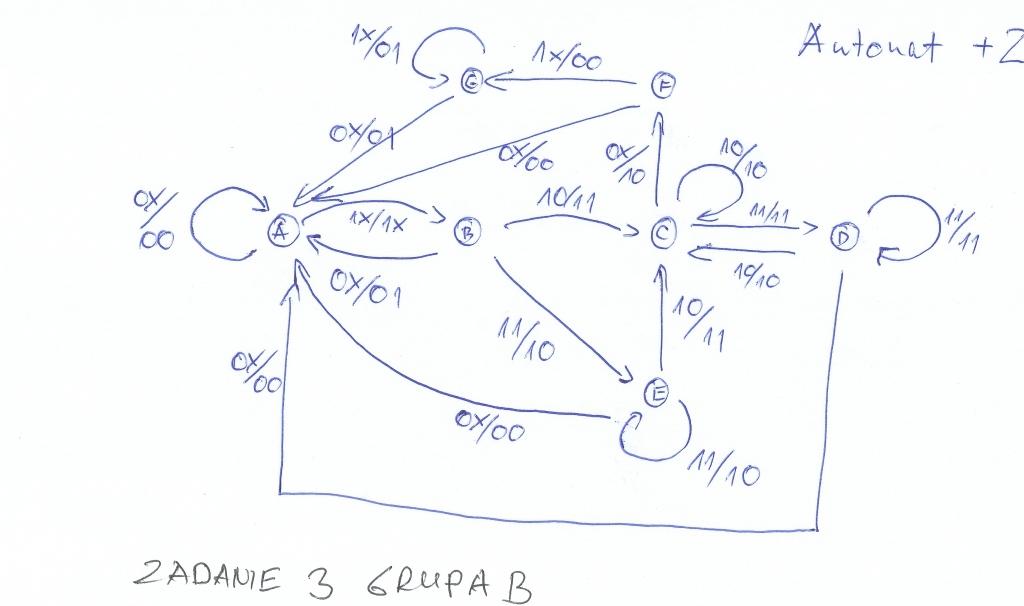 Automat +Z
1x/01
1x/00
G
F
0x/01
0x/00
0x/10
10/10
0x/00
A
1x/1x
B
10/11
C
11/11
D
11/11
0x/01
10/10
11/10
10/11
0x/00
E
0x/00
11/10
ZADANIE 3 GRUPA B